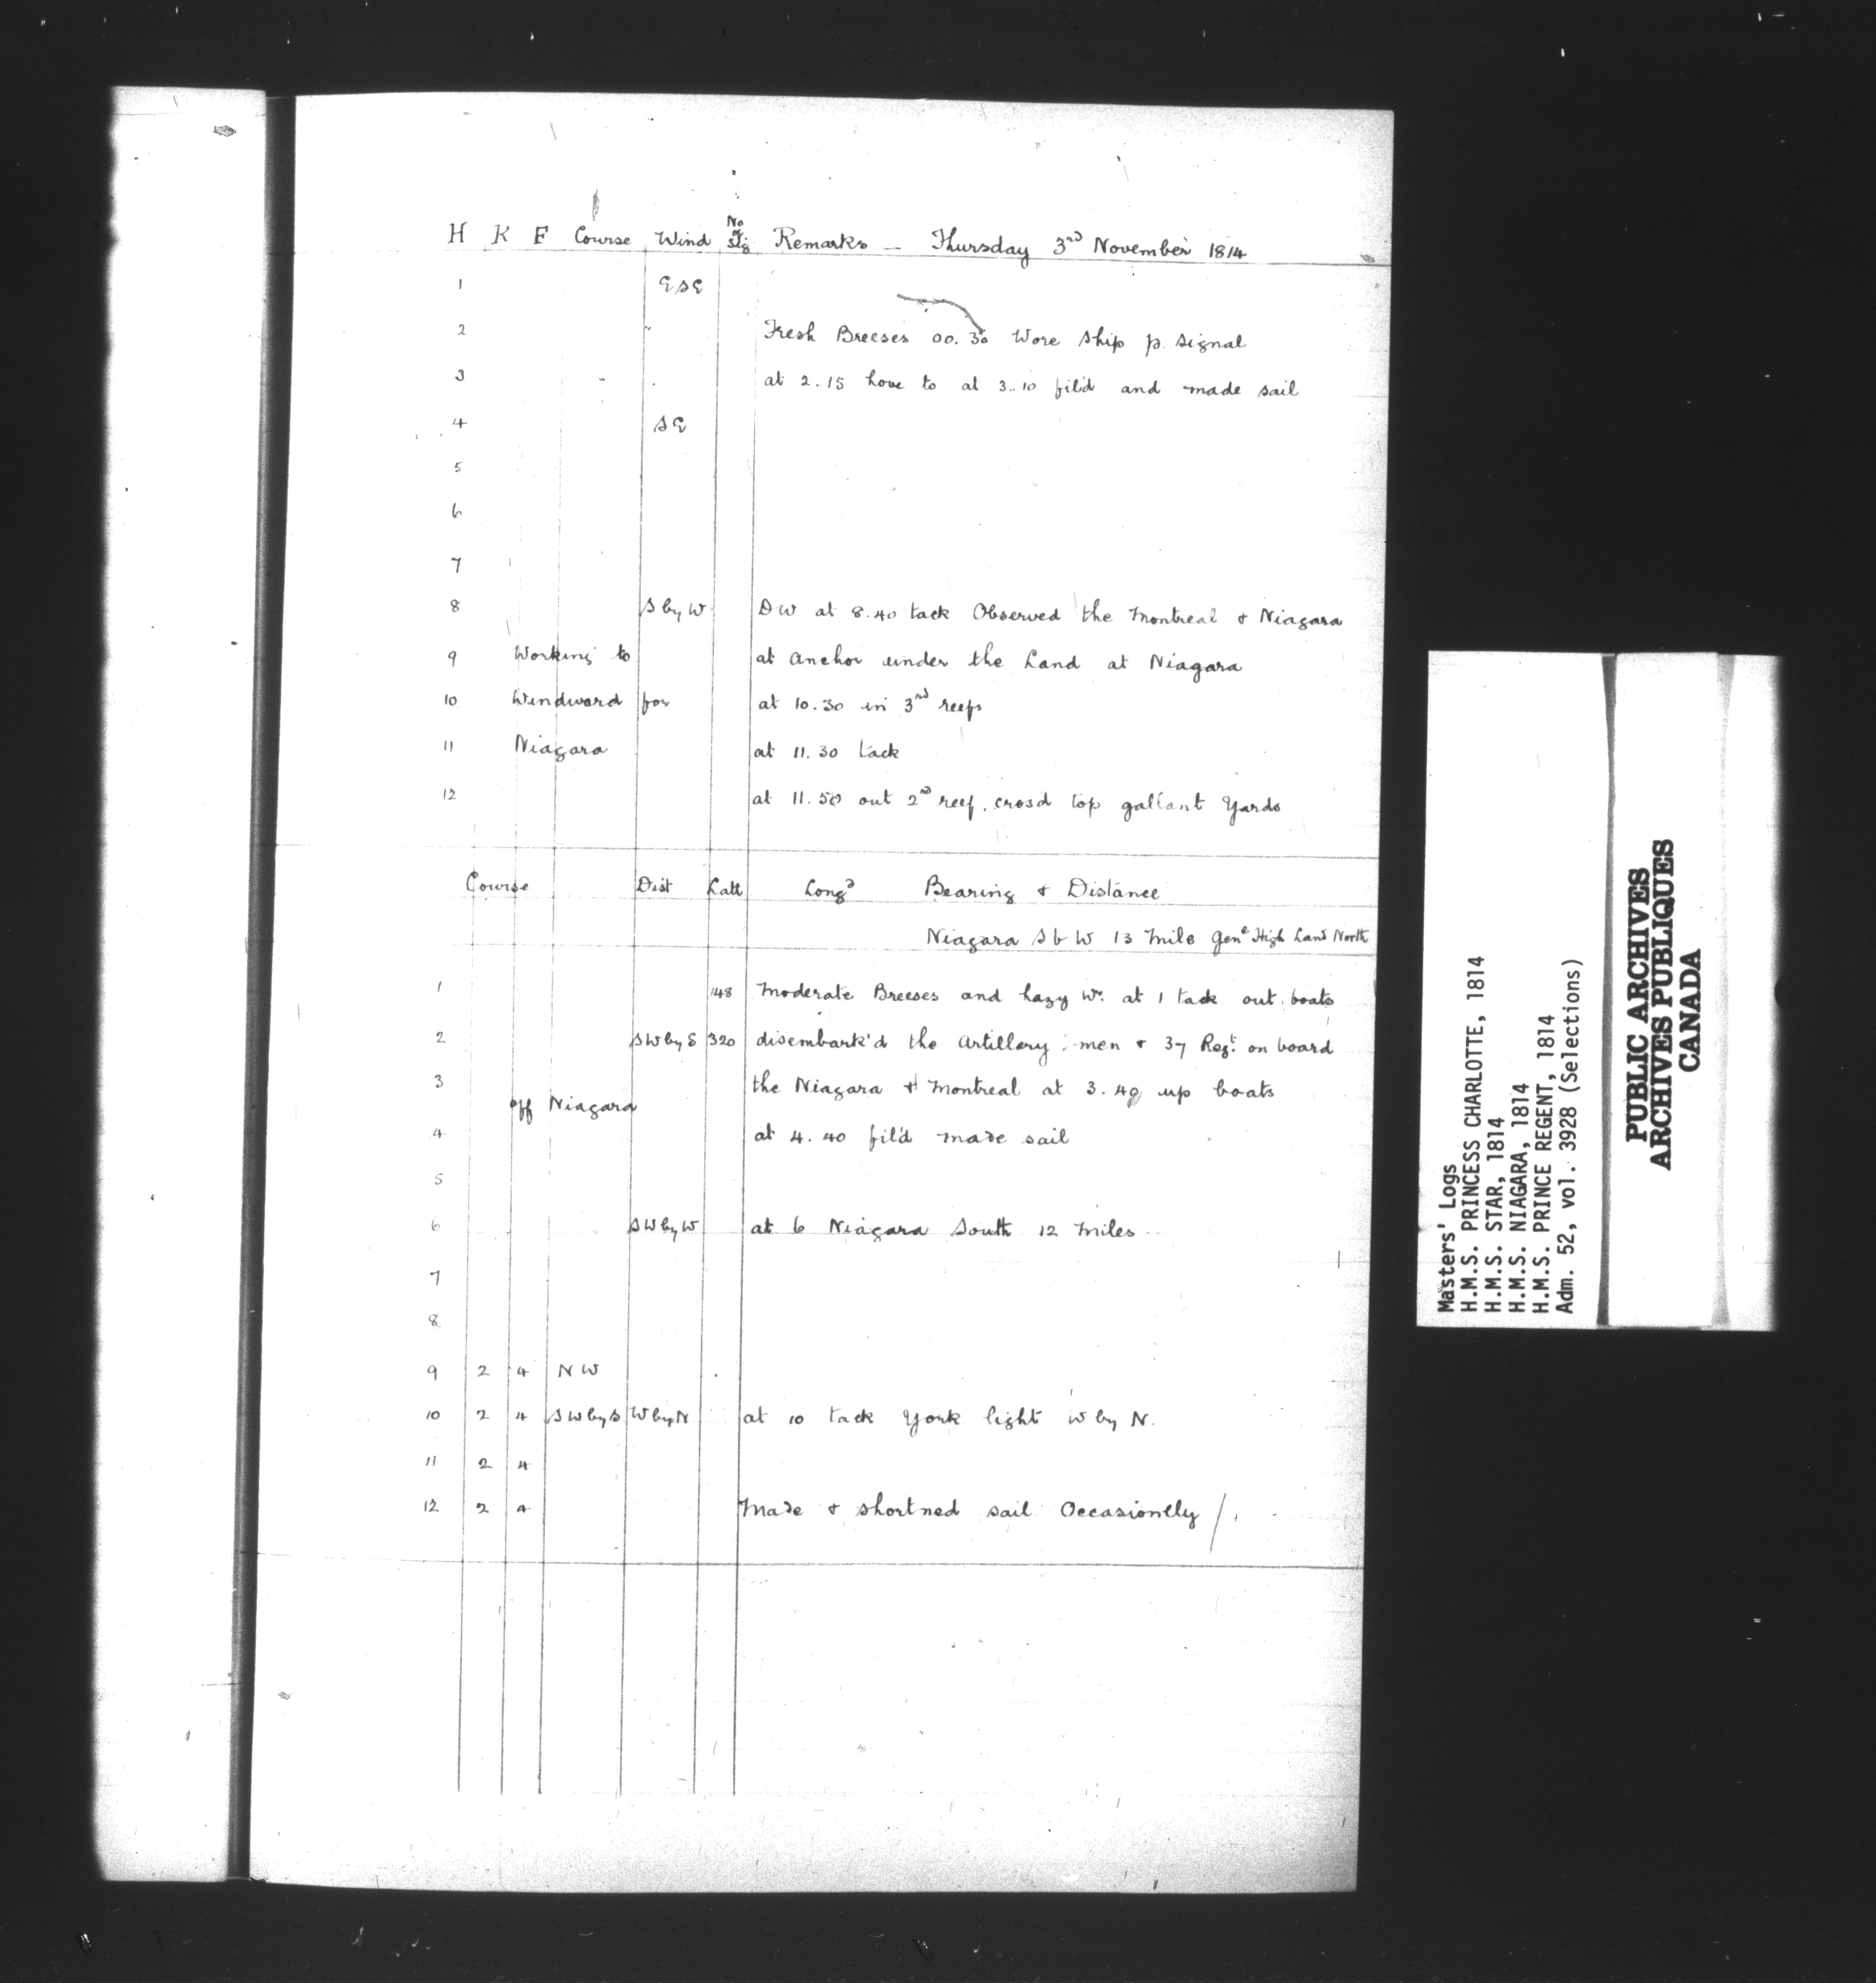 H K F Course Wind No of Sig Remarks — Thursday 3rd November 1814
1 ESE
2 " Fresh Breeses 00.30 Wore Ship p. signal
3 at 2.15 hove to at 3..10 fil'd and made sail
4 SE
5
6
7
8 S by W DW at 8.40 tack Observed the Montreal & Niagara
9 Working to at anchor under the Land at Niagara
10 Windward for at 10.30 in 3rd reefs
11 Niagara at 11.30 tack
12 at 11.50 out 2nd reef. crosd top gallant Yards
Course Dist Latt Longd Bearing & Distance
Niagara S b W 13 Mile High Land North
1 148 Moderate Breeses and hazy Wr. at 1 tack out boats
2 SW by S 320 disembark'd the Artillery men & 37 Regt. on board
3 the Niagara & Montreal at 3.40 up boats
off Niagara
4 at 4.40 fil'd made sail
5
6 SW by W at 6 Niagara South 12 Miles
7
8
9 2 4 NW
10 2 4 SW by S W by N at 10 tack York light W by N.
11 2 4
12 2 4 Made & shortned sail Occasionlly /.
Masters' Logs
H.M.S. PRINCESS CHARLOTTE, 1814
H.M.S. STAR, 1814
H.M.S. NIAGARA, 1814
H.M.S. PRINCE REGENT, 1814
Adm. 52, vol. 3928 (Selections)
PUBLIC ARCHIVES
ARCHIVES PUBLIQUES
CANADA